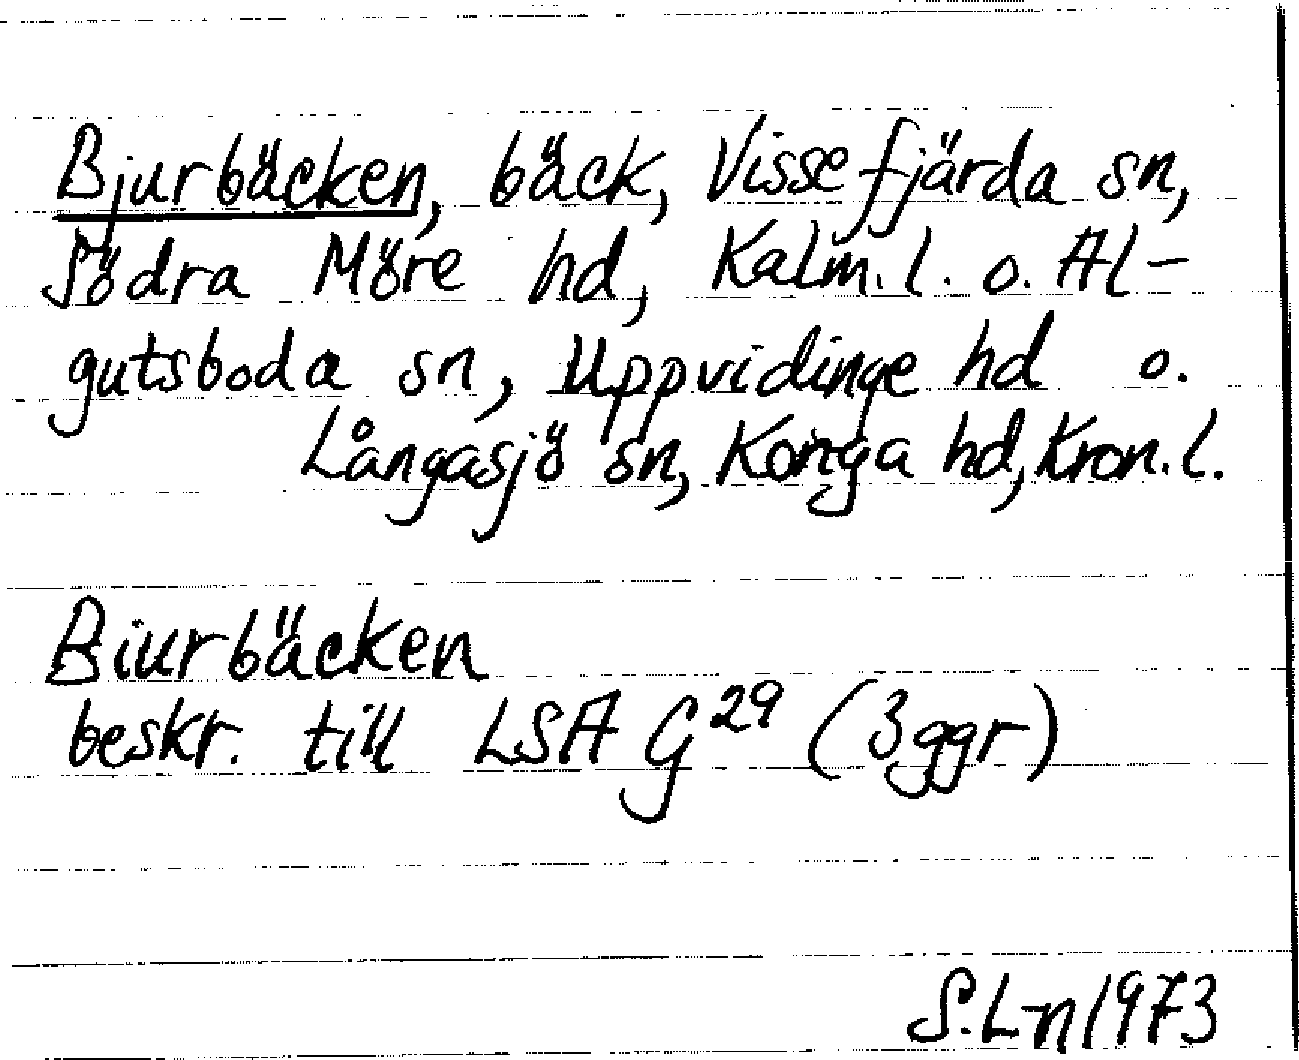 Bjurbäcken, bäck, Vissefjärda sn,
Södra Möre hd, Kalm.l. o. Al-
gutsboda sn, Uppvidinge hd o.
Långasjö sn, Konga hd, Kron.l.
Biurbäcken
beskr. till LSA G29 (3ggr)
S.L-n 1973